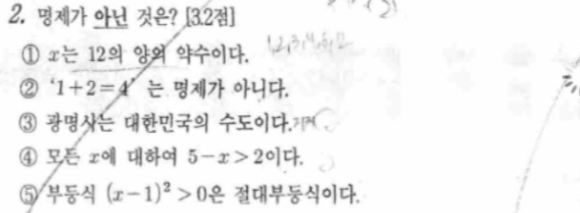 2. 명제가 아닌 것은? [3.2점]
① x는 12의 양의 약수이다. 1,2,3,4,6,12
② '1+2=4' 는 명제가 아니다.
③ 광명시는 대한민국의 수도이다.
④ 모든 x에 대하여 5-x>2이다.
⑤ 부등식 (x-1)²>0은 절대부등식이다.